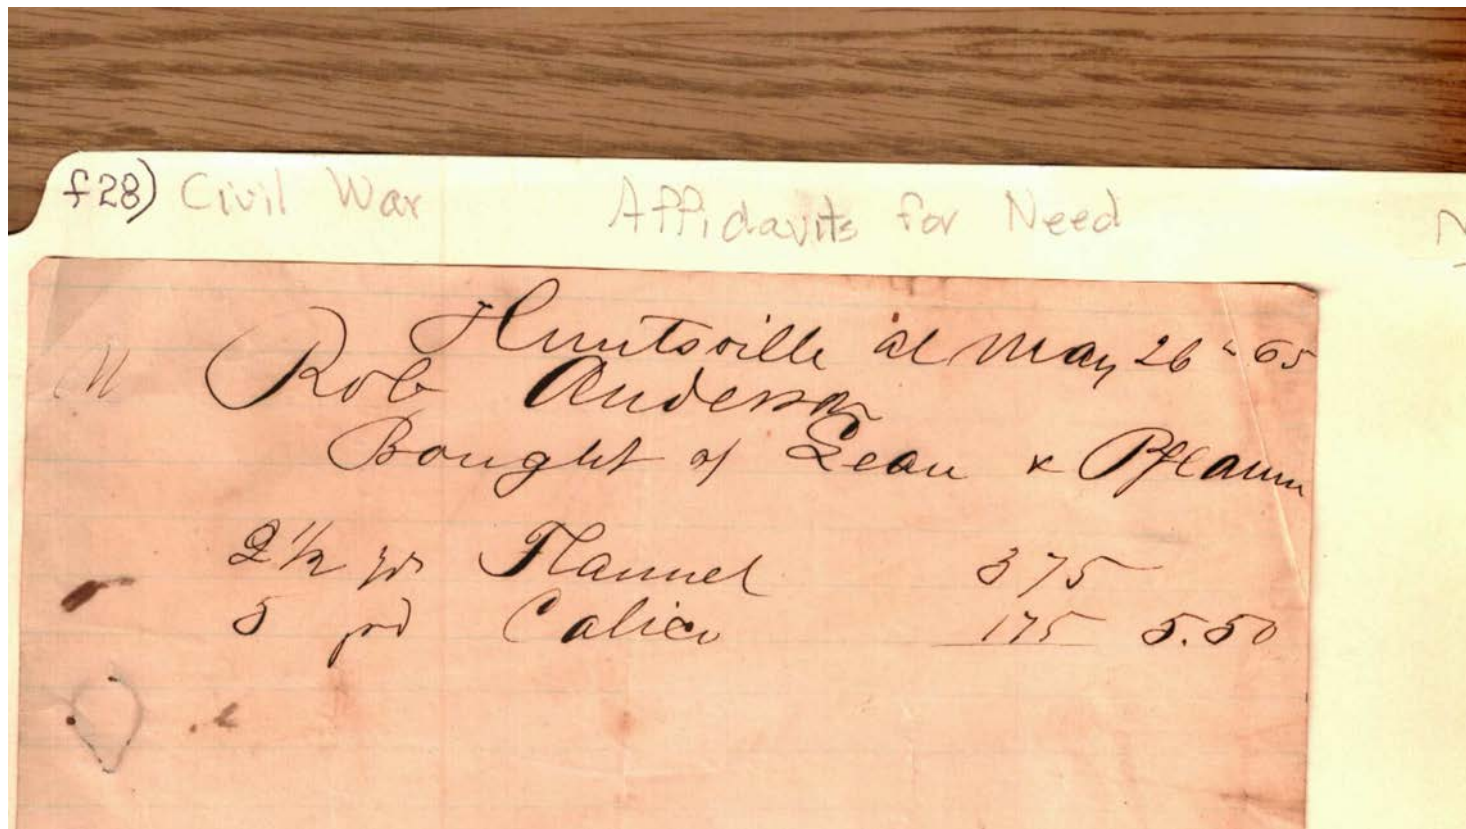 f28) Civil War Affidavits for Need N
Huntsville al May 26 " 65
M Rob Anderson
Bought of & Pflaum
2 1/2 yds Flannel 375
5 yd Calico 175 5.50